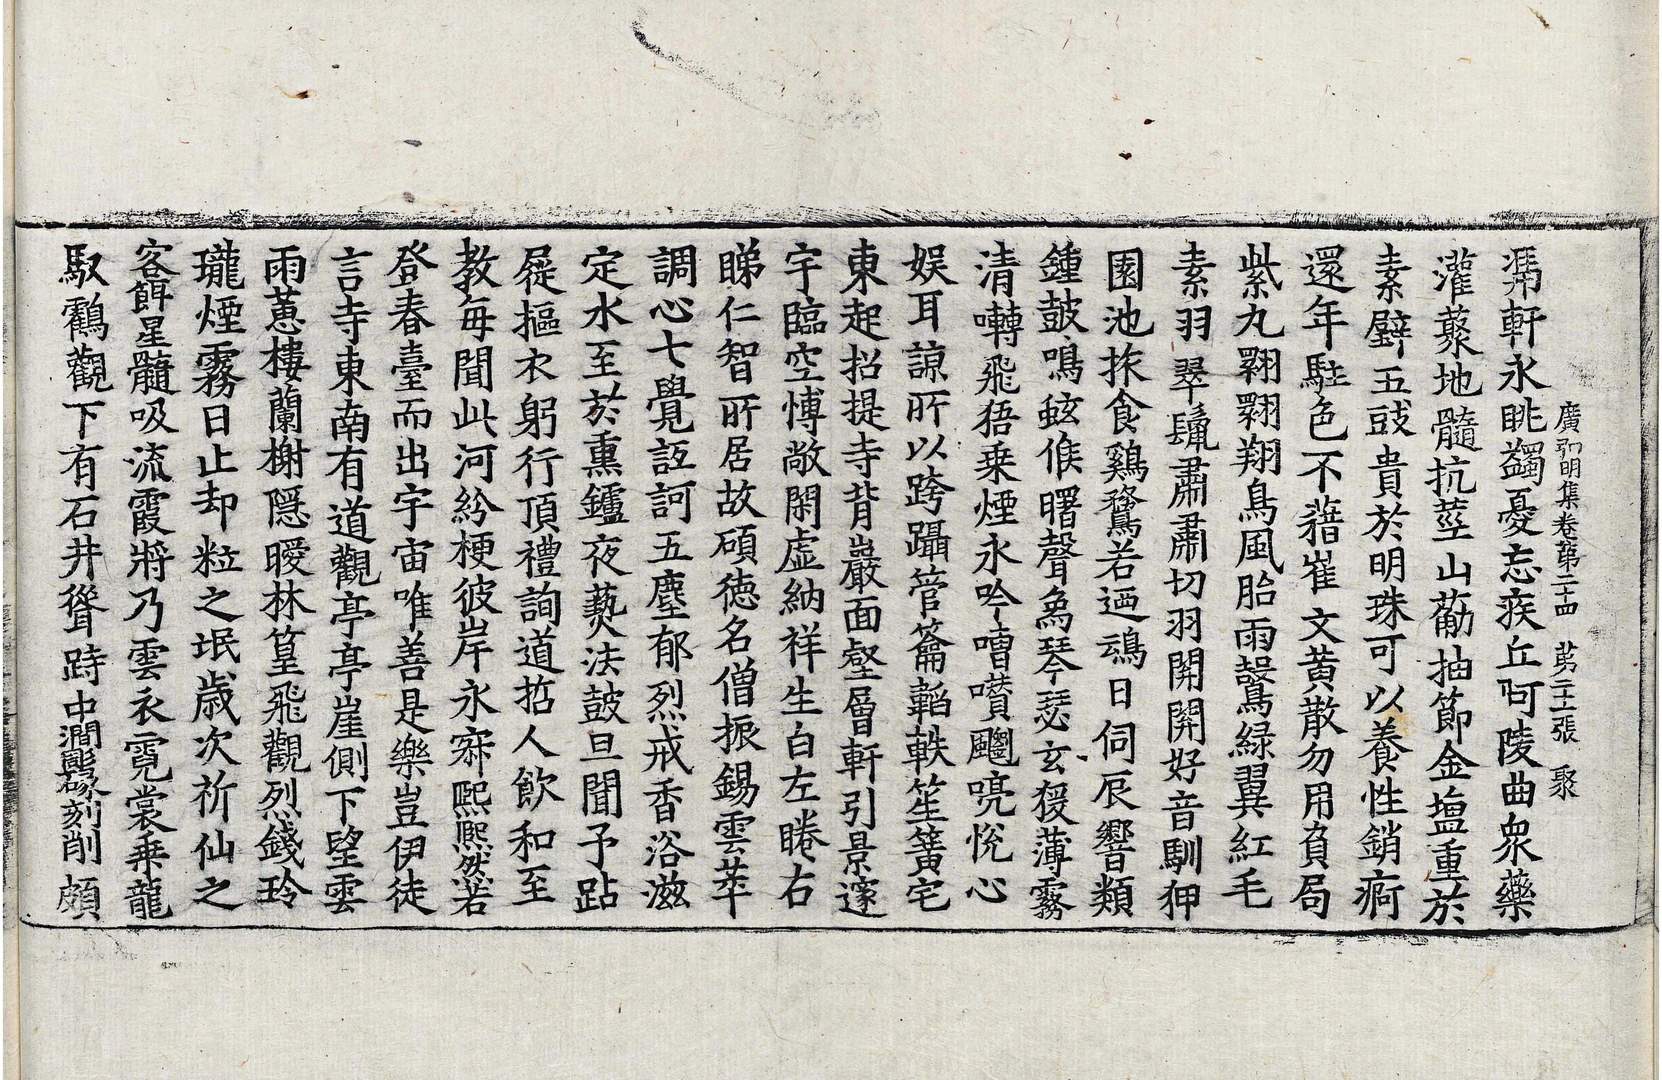 廣弘明集卷第二十四 第二十二張 聚
𠘁軒永眺蠲憂忘疾丘阿陵曲衆藥
灌藂地髓抗莖山薊抽節金塩重於
素璧五豉貴於明珠可以養性銷痾
還年駐色不藉崔文黃散勿用負局
紫丸翾翾翔鳥風胎雨鷇綠翼紅毛
素羽翠鬛肅肅切羽関関好音馴狎
園池旅食鷄鶩若迺鴆日伺辰響類
鍾鼓鳴蛩候曙聲象琴瑟玄猨薄霧
清囀飛狖乗煙永吟嘈囋飀亮悅心
娛耳諒所以跨躡管籥韜軼笙簧宅
東起招提寺背巖面壑層軒引景邃
宇臨空博敞閑虛納祥生白左睠右
睇仁智所居故碩德名僧振錫雲萃
調心七覺詆訶五塵郁烈戒香浴滋
定水至於熏鑪夜爇法鼓旦聞予跕
屣摳衣躬行頂禮詢道哲人飲和至
教每聞此河紛梗彼岸永寂熙熙然若
登春臺而出宇宙唯善是樂豈伊徒
言寺東南有道觀亭亭崖側下望雲
雨蕙樓蘭榭隱曖林篁飛觀烈錢玲
瓏煙霧日止却粒之氓歲次祈仙之
客餌星髓吸流霞將乃雲衣霓裳乗龍
馭鶴觀下有石井聳跱中澗雕琢刻削頗